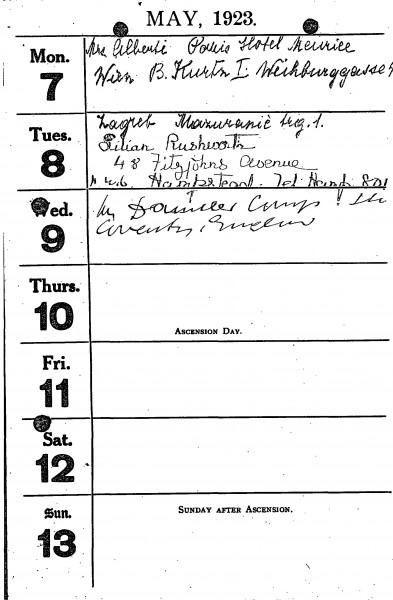 MAY, 1923.
Mon.
7
Mrs Alberti Paris Hotel Meurice
Wien B. Kurtn I. Weihburggasse 4
Tues.
8
Zagreb Mazuranić trg. 1.
Lilian Rushworth
48 Fitzjohns Avenue
N.W.6. Hampstead. Tel Hamp
Wed.
9
Daimler Comp
Coventry, England
Thurs.
10
ASCENSION DAY.
Fri.
11
Sat.
12
Sun.
13
SUNDAY AFTER ASCENSION.